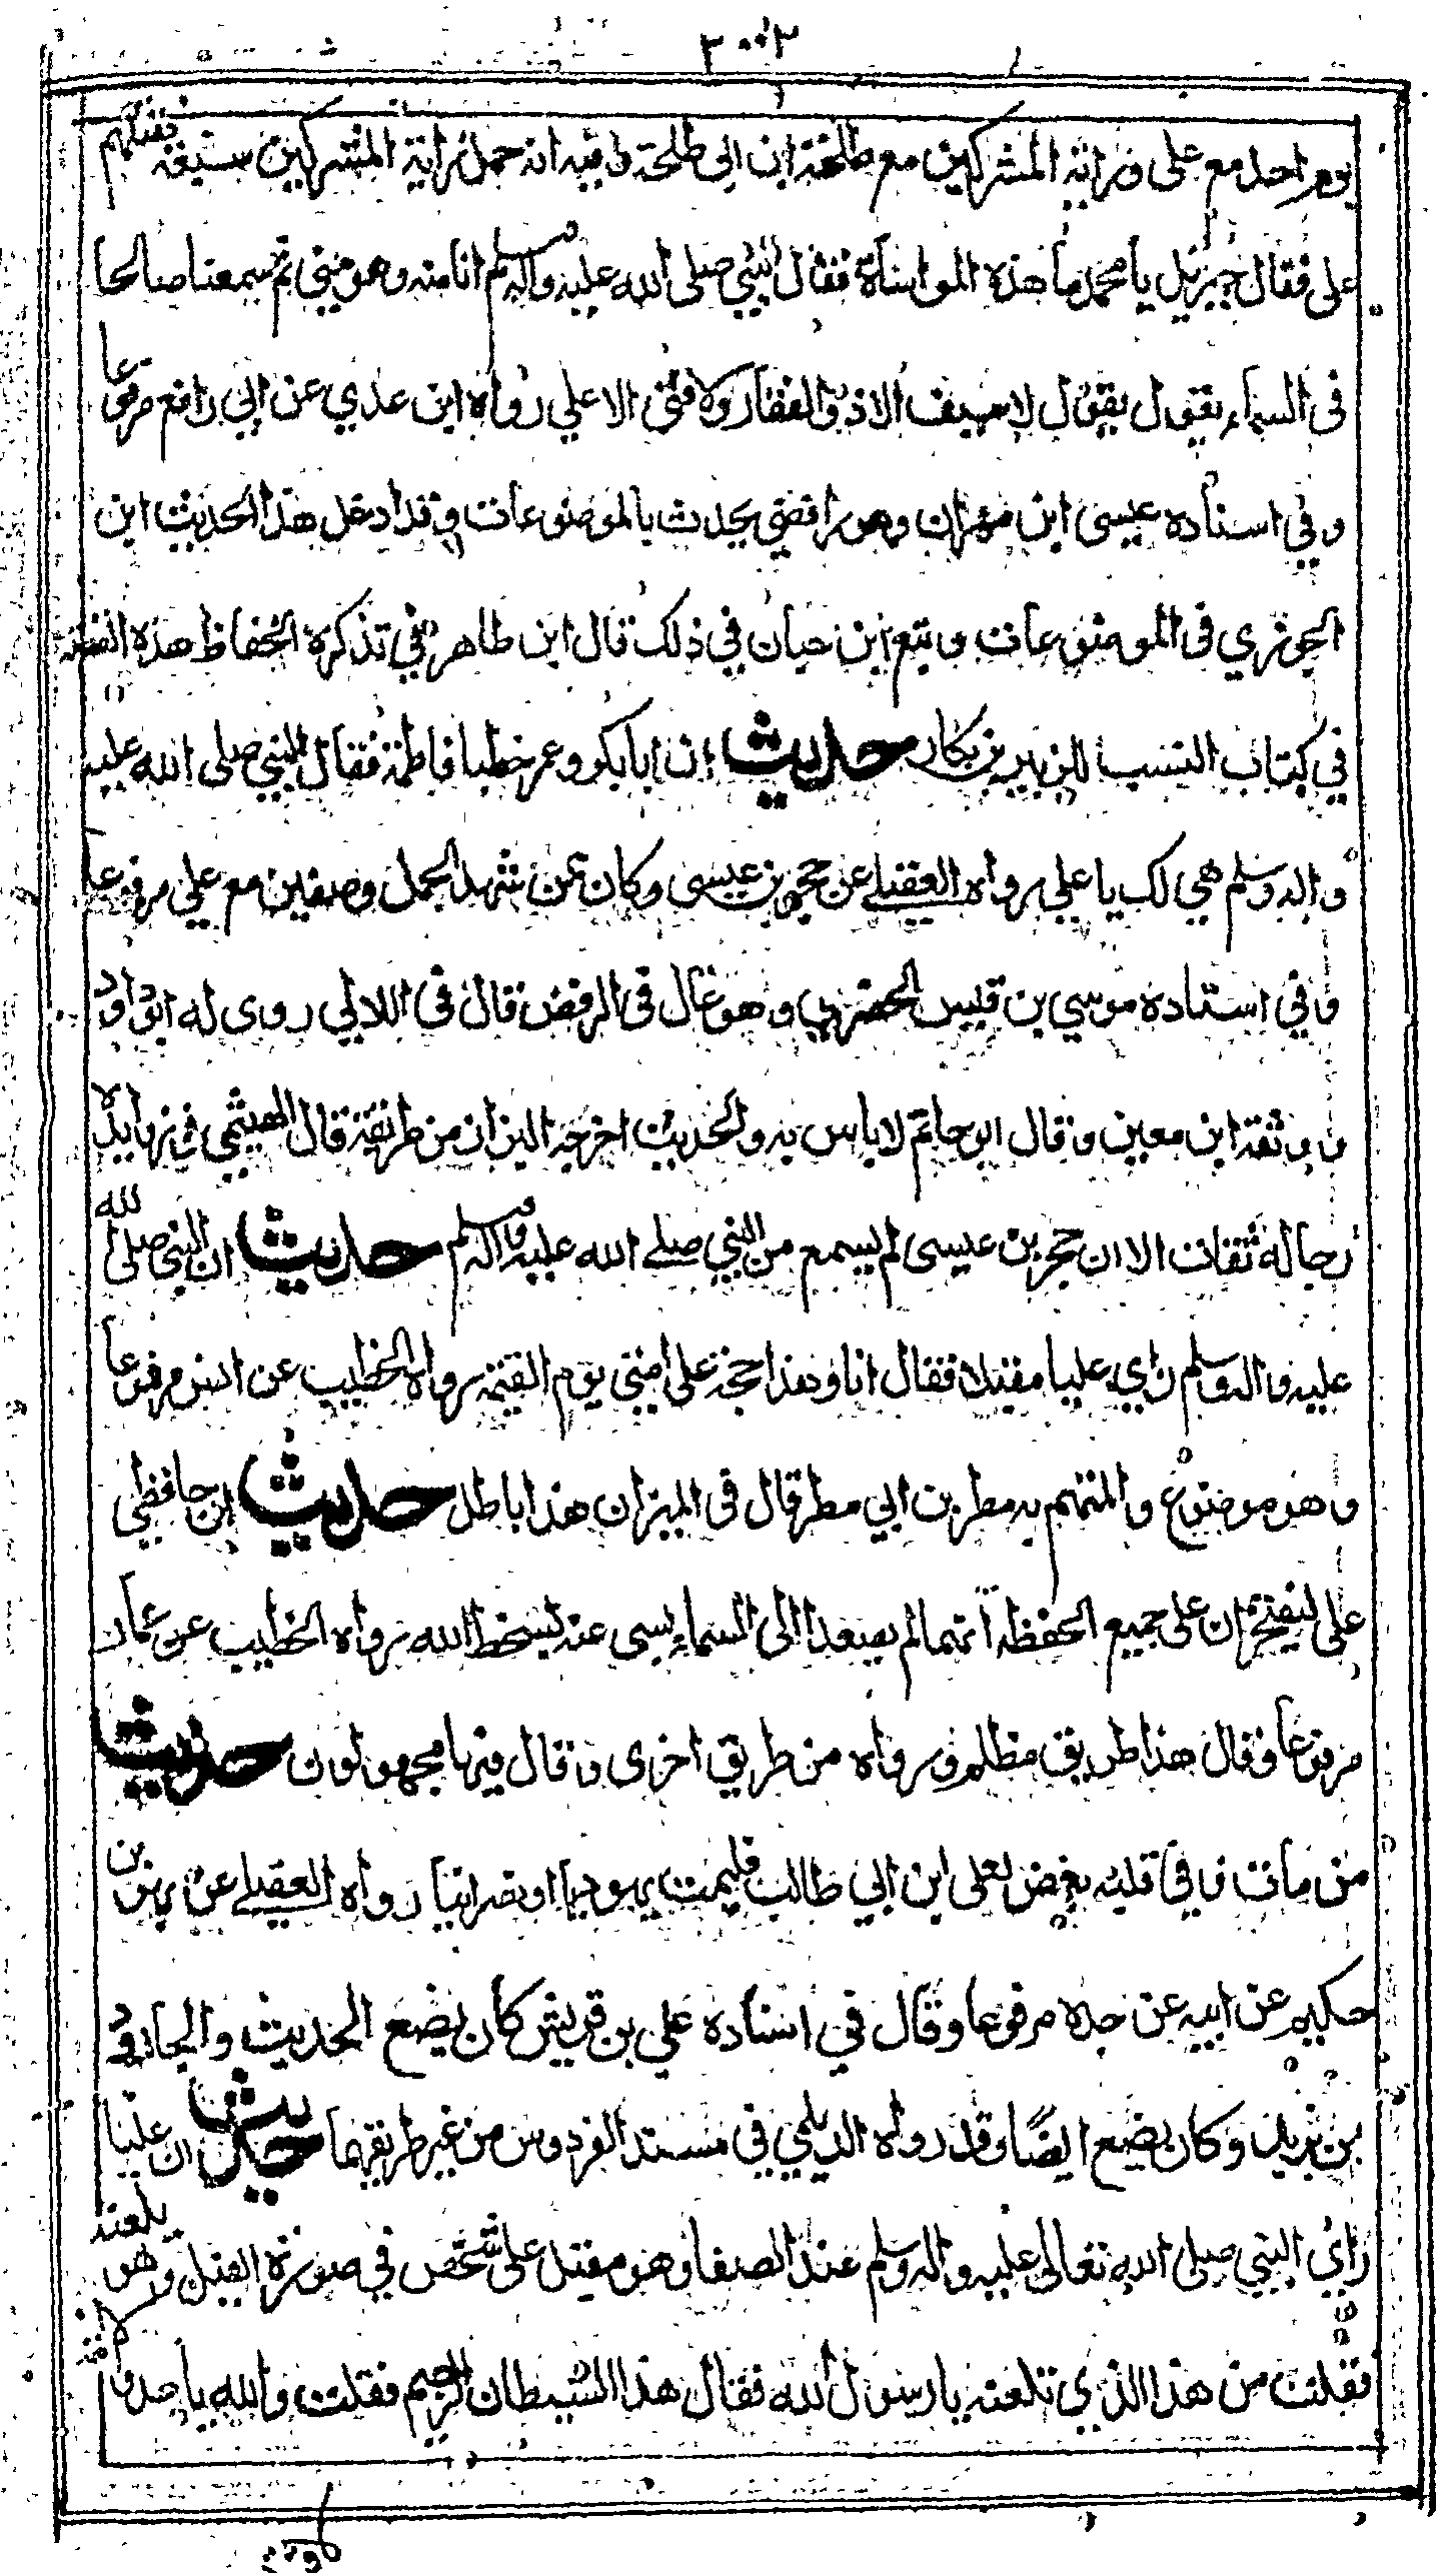 ٣٠٠٢
يوم احد مع على وراية المشركين مع طلحة ابن ابى طلحة وفيه انه حمل راية المشركين سبعة فقتلهم
على فقال جبرئيل يا محمد ما هذه المواساة فقال النبي صلى الله عليه واله وسلم انا منه وهو منى ثم سمعنا صائحا
فى السماء يقول يقول لا سيف الا ذو الفقار ولا فتى الا على رواه ابن عدي عن ابي رافع مرفوعا
وفي اسناده عيسى ابن مهران وهو رافضي يحدث بالموضوعات وقد ادخل هذا الحديث ابن
الجوزي فى الموضوعات وتبع ابن حبان في ذلك قال ابن طاهر في تذكرة الحفاظ هذه القصة
في كتاب النسب للزبير بن بكار حديث ان ابا بكر وعمر خطبا فاطمة فقال النبي صلى الله عليه
واله وسلم هي لك يا علي رواه العقيلے عن حجر بن عيسى وكان ممن شهد الجمل وصفين مع علي مرفوعا
وفي اسناده موسي بن قيس الحضرمي وهو غال فى الرفض قال فى اللالي روى له ابو داود
و وثقه ابن معين وقال ابو حاتم لا باس به والحديث اخرجه البزار من طريقة قال الهيثمي في زوايده
رجاله ثقات الا ان حجر بن عيسى لم يسمع من النبي صلے الله عليه واله وسلم حديث ان النبي صلى الله
عليه واله وسلم راي عليا مقبلا فقال انا وهذا حجة على امتي يوم القيمة رواه الخطيب عن انس مرفوعا
وهو موضوع والمتهم به مطر بن ابي مطر قال فى الميزان هذا باطل حديث ان حافظي
على ليفتخران على جميع الحفظة انهما لم يصعدا الى السماء بشى عنه يسخط الله رواه الخطيب عن عمار
مرفوعا وقال هذا طريق مظلم ورواه من طريق اخرى وقال فيها مجهولون حديث
من مات وفي قلبه بغض لعلى ابن ابي طالب فليمت يهوديا او نصرانيا رواه العقيلے عن بهز بن
حكيم عن ابيه عن جده مرفوعا وقال في اسناده علي بن قريش كان يضع الحديث والجارود
بن يزيد وكان يضع ايضا وقد رواه الديلمي في مسند الفردوس من غير طريقهما حديث ان عليا
راي النبي صلى الله تعالى عليه واله وسلم عند الصفا وهو مقبل على شخص في صورة الفيل وهو يلعنه
فقلت من هذا الذي تلعنه يا رسول الله فقال هذا الشيطان الرجيم فقلت والله يا عدو